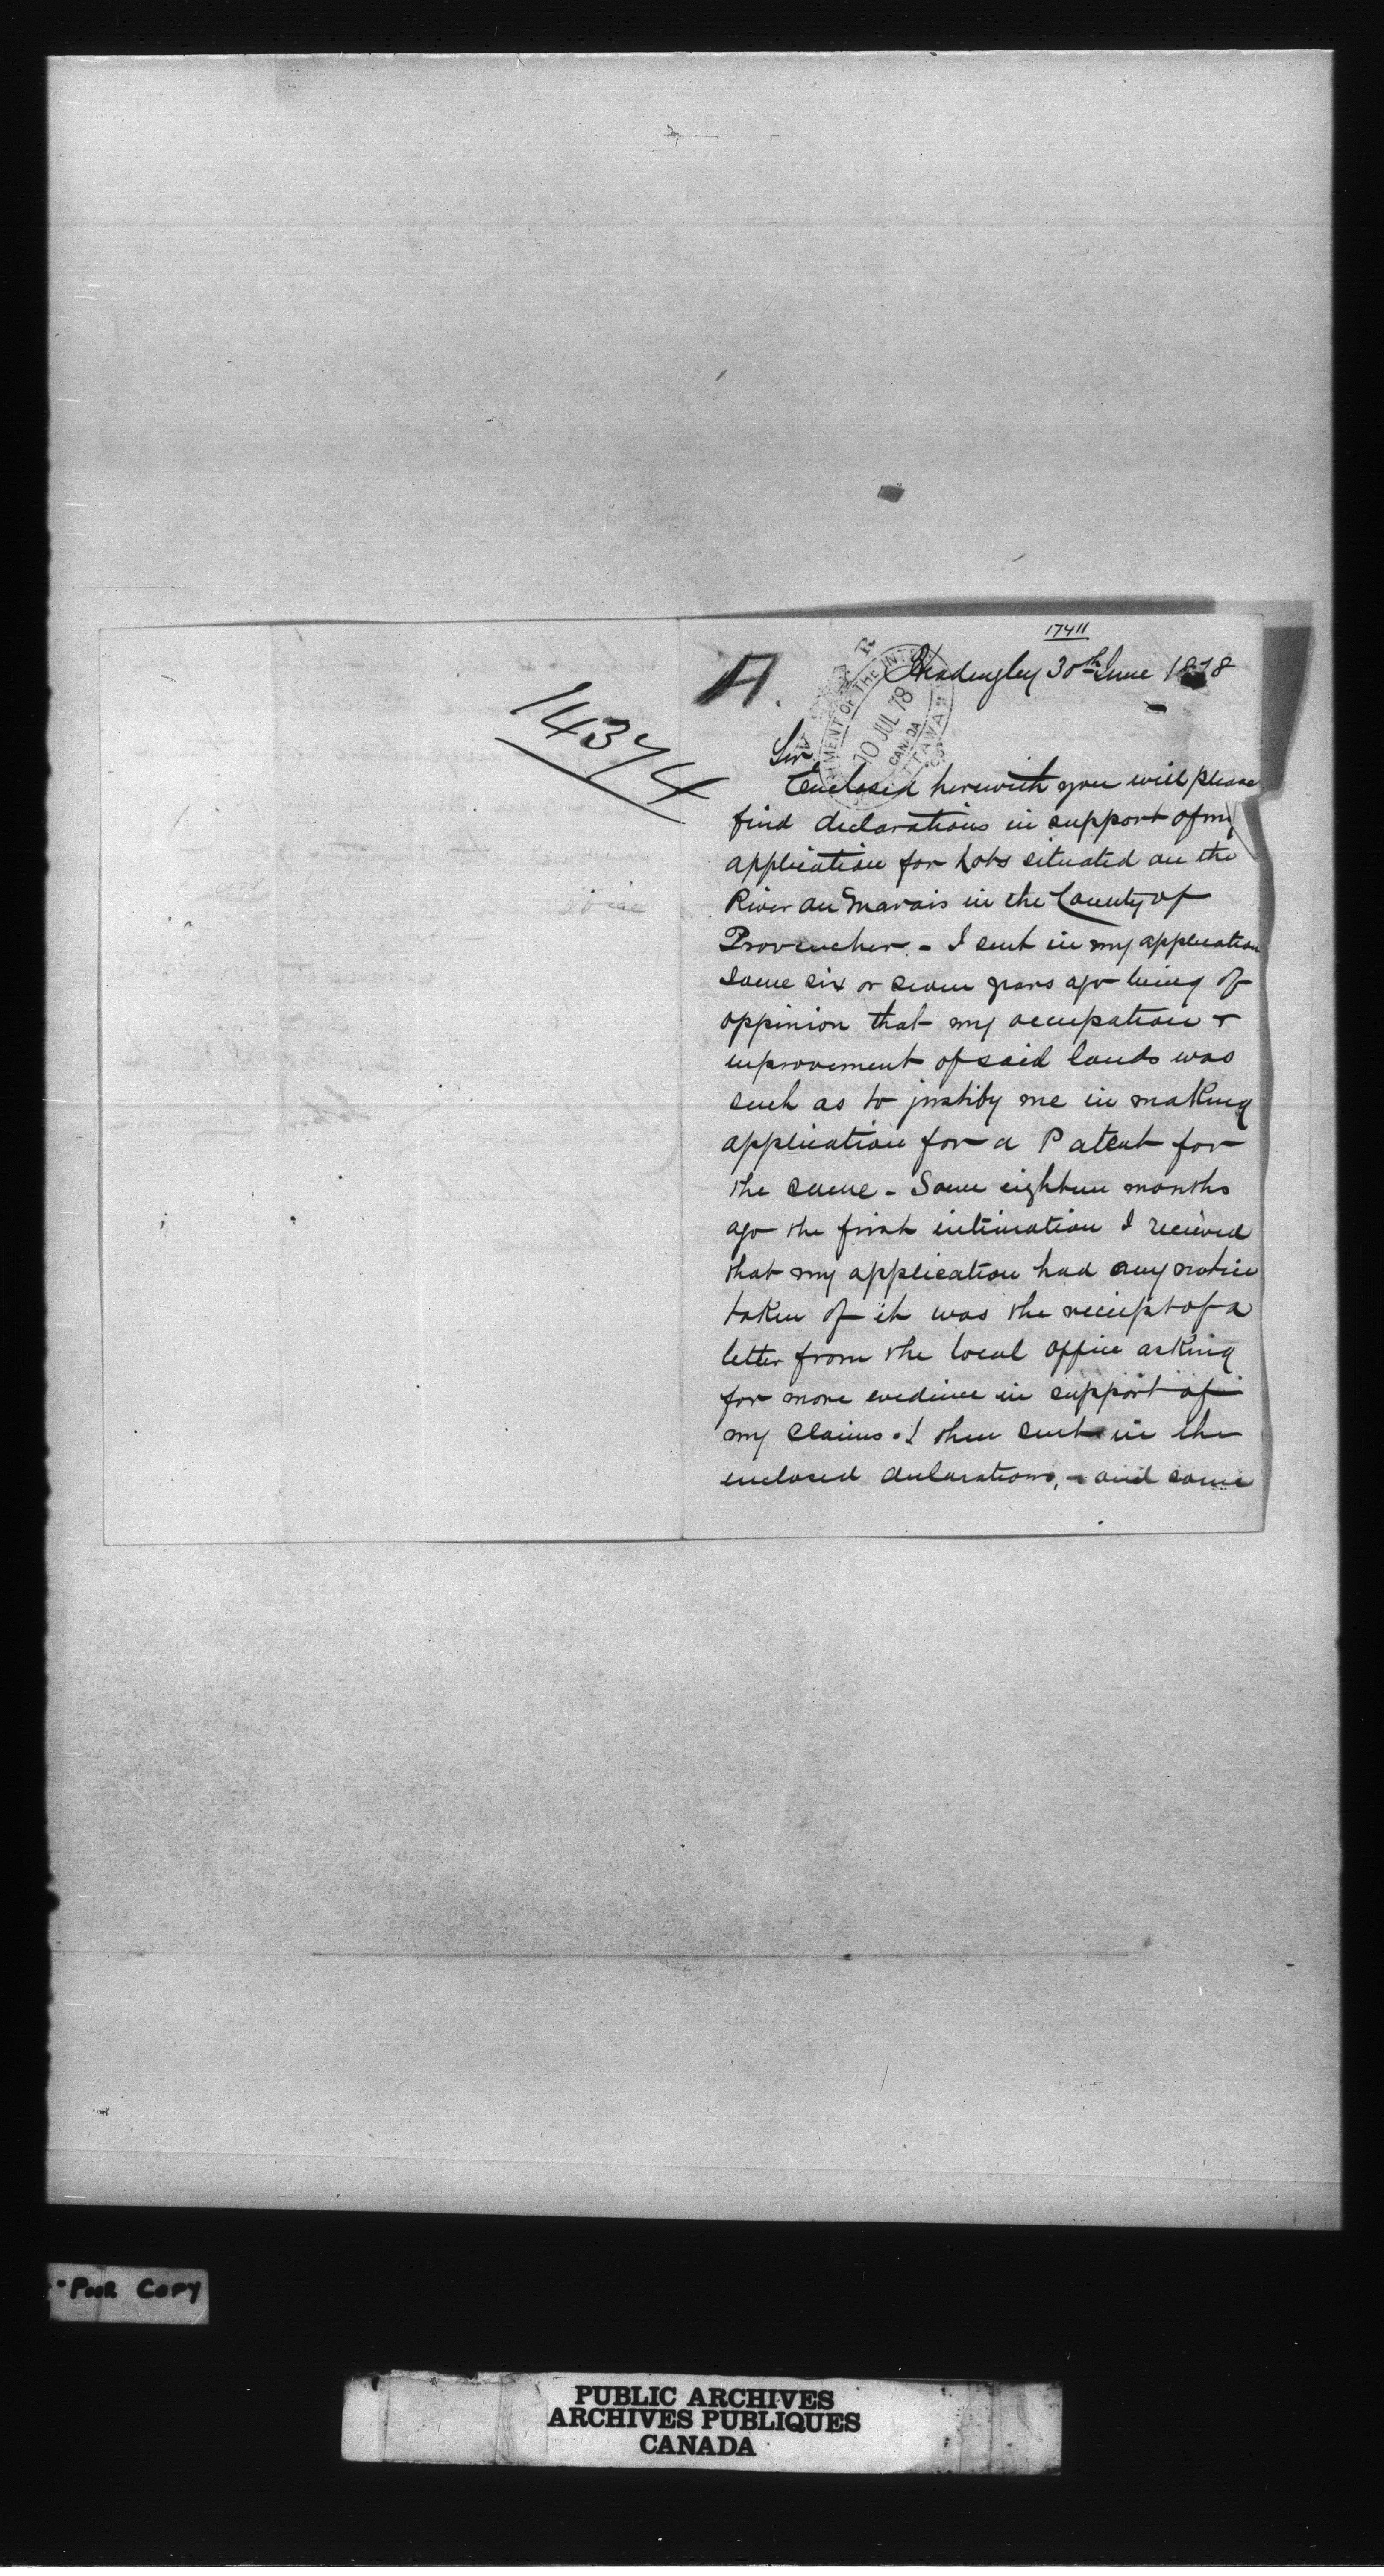 17411
A.
Headingley 30th June 1878
DEPARTMENT OF THE INTERIOR
10 JUL 78
CANADA
OTTAWA
14374
Sir
Enclosed herewith you will please
find declarations in support of my
application for Lots situated on the
River au Marais in the County of
Provencher. - I sent in my application
some six or seven years ago being of
oppinion that my occupation &
improvement of said lands was
such as to justify me in making
application for a Patent for
the same - Some eighteen months
ago the first intimation I recieved
that my application had any notice
taken of it was the reciept of a
letter from the local office asking
for more evidence in support of
my claims. I then sent in the
enclosed declarations, - and some
Poor Copy
PUBLIC ARCHIVES
ARCHIVES PUBLIQUES
CANADA